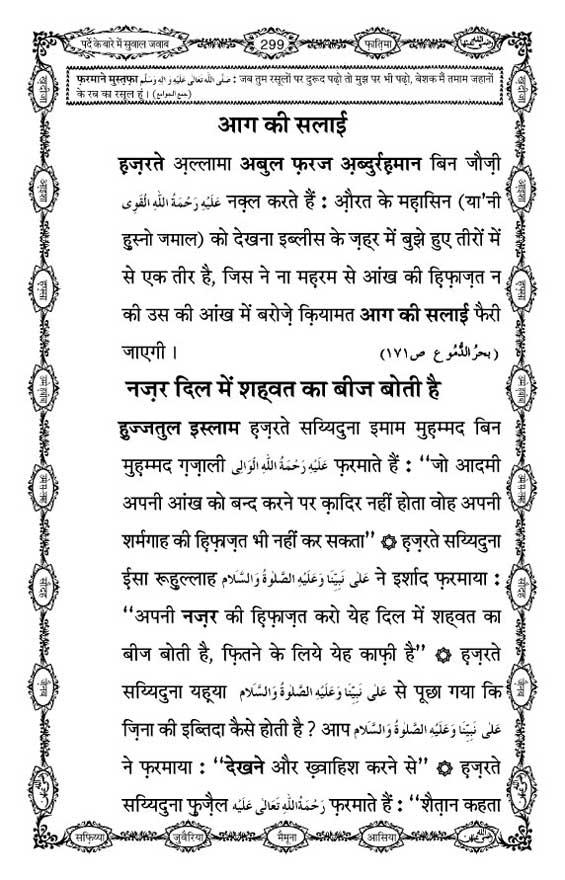 पर्दे के बारे में सुवाल जवाब
299
फ़ातिमा
फ़रमाने मुस्तफ़ा صَلَّى اللهُ تَعَالٰى عَلَيْهِ وَاٰلِهٖ وَسَلَّم : जब तुम रसूलों पर दुरूद पढ़ो तो मुझ पर भी पढ़ो, बेशक मैं तमाम जहानों
के रब का रसूल हूं । (جمع الجوامع)
आग की सलाई
हज़रते अ़ल्लामा अबुल फ़रज अ़ब्दुर्रह़मान बिन जौज़ी
عَلَيْهِ رَحْمَةُ اللّٰهِ الْقَوِى नक़्ल करते हैं : औ़रत के मह़ासिन (या'नी
हुस्नो जमाल) को देखना इब्लीस के ज़ह्र में बुझे हुए तीरों में
से एक तीर है, जिस ने ना मह़रम से आंख की ह़िफ़ाज़त न
की उस की आंख में बरोज़े क़ियामत आग की सलाई फैरी
जाएगी । (بحرُ الدُّمُوع ص۱۷۱)
नज़र दिल में शह्वत का बीज बोती है
हुज्जतुल इस्लाम हज़रते सय्यिदुना इमाम मुह़म्मद बिन
मुह़म्मद ग़ज़ाली عَلَيْهِ رَحْمَةُ اللّٰهِ الْوَالِى फ़रमाते हैं : ‘‘जो आदमी
अपनी आंख को बन्द करने पर क़ादिर नहीं होता वोह अपनी
शर्मगाह की ह़िफ़ाज़त भी नहीं कर सकता’’ ۞ हज़रते सय्यिदुना
ई़सा रूह़ुल्लाह عَلٰى نَبِيِّنَا وَعَلَيْهِ الصَّلٰوةُ وَالسَّلَام ने इर्शाद फ़रमाया :
‘‘अपनी नज़र की ह़िफ़ाज़त करो येह दिल में शह्वत का
बीज बोती है, फ़ितने के लिये येह काफ़ी है’’ ۞ हज़रते
सय्यिदुना यह़्या عَلٰى نَبِيِّنَا وَعَلَيْهِ الصَّلٰوةُ وَالسَّلَام से पूछा गया कि
ज़िना की इब्तिदा कैसे होती है ? आप عَلٰى نَبِيِّنَا وَعَلَيْهِ الصَّلٰوةُ وَالسَّلَام
ने फ़रमाया : ‘‘देखने और ख़्वाहिश करने से’’ ۞ हज़रते
सय्यिदुना फ़ुज़ैल رَحْمَةُ اللّٰهِ تَعَالٰى عَلَيْهِ फ़रमाते हैं : ‘‘शैत़ान कहता
सफ़िय्या
जुवैरिया
मैमूना
आसिया